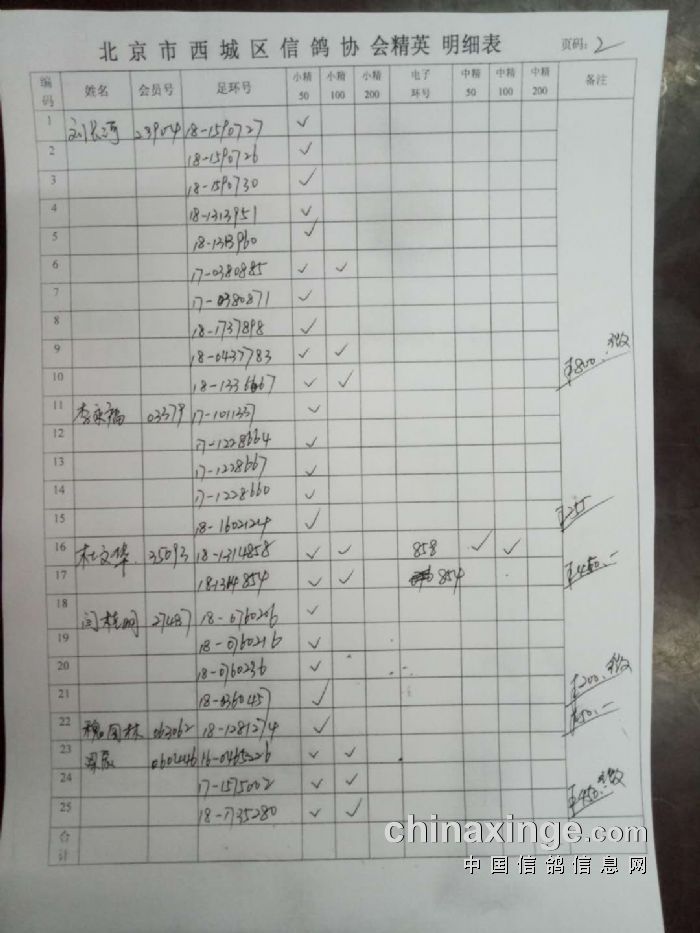 北京市西城区信鸽协会精英明细表 页码：2
编码 姓名 会员号 足环号 小精50 小精100 小精200 电子环号 中精50 中精100 中精200 备注
1 刘长河 23904 18-1590727 ✓
2 18-1590726 ✓
3 18-1590730 ✓
4 18-1313951 ✓
5 18-1313960 ✓
6 17-0380885 ✓ ✓
7 17-0380871 ✓
8 18-1737898 ✓
9 18-0437783 ✓ ✓
10 18-1336667 ✓ ✓ ¥800.
11 李永福 03379 17-1011337 ✓
12 17-1228664 ✓
13 17-1228667 ✓
14 17-1228660 ✓
15 18-1602124 ✓
16 杜文华 35093 18-1314858 ✓ ✓ 858 ✓ ✓
17 18-1314854 ✓ ✓ 854 ¥450.-
18 闫桂明 27487 18-0760206 ✓
19 18-0760216 ✓
20 18-0760236 ✓
21 18-0360457 ✓ ¥200.
22 魏国林 062062 18-1281274 ✓ ¥50.-
23 0602446 16-0465226 ✓ ✓
24 17-1575002 ✓ ✓
25 18-1735280 ✓ ✓ ¥450.
合计
chinaxinge.com
中国信鸽信息网